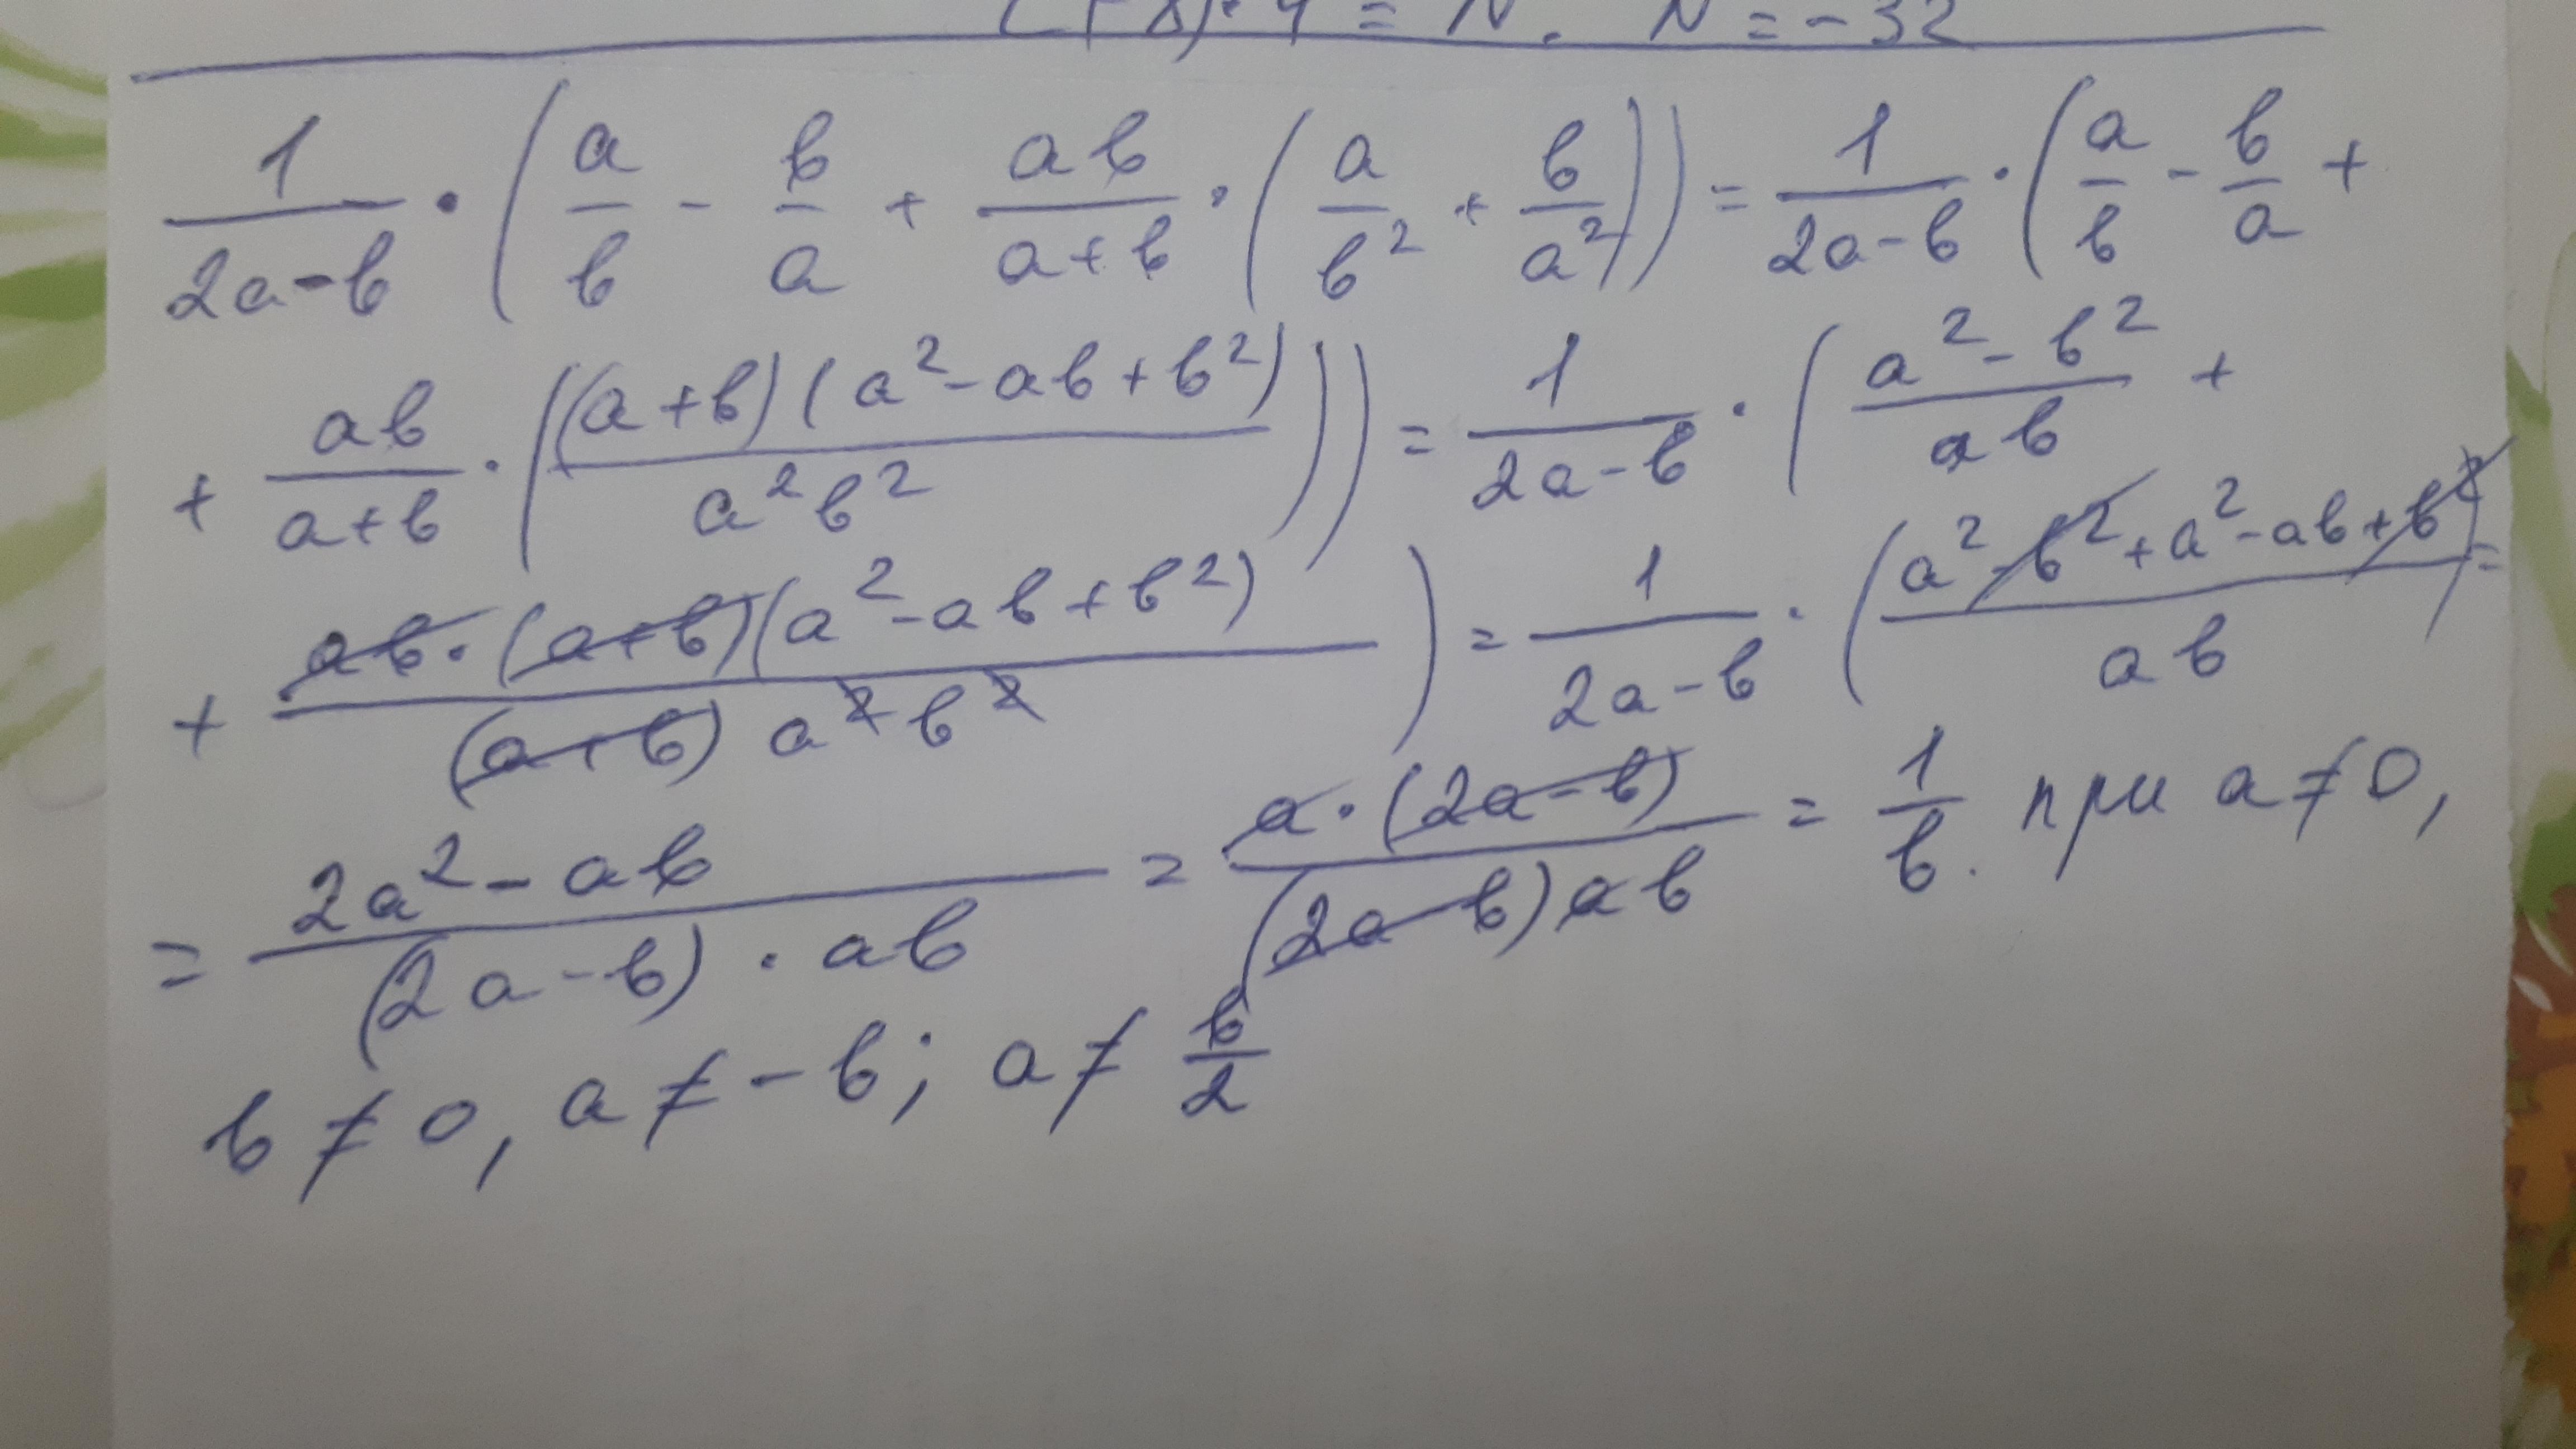 (-8)·4 = N. N = -32
1/(2a-b) · (a/b - b/a + ab/(a+b) · (a/b² + b/a²)) = 1/(2a-b) · (a/b - b/a +
+ ab/(a+b) · ((a+b)(a²-ab+b²)/a²b²)) = 1/(2a-b) · ((a²-b²)/ab +
+ ab·(a+b)(a²-ab+b²)/((a+b)a²b²)) = 1/(2a-b) · ((a²-b²+a²-ab+b²)/ab) =
= (2a²-ab)/((2a-b)·ab) = a·(2a-b)/((2a-b)ab) = 1/b. при a≠0,
b≠0, a≠-b; a≠b/2